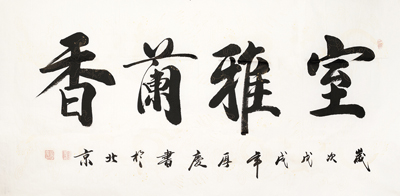 室雅蘭香
歲次戊戌年厚慶書於北京